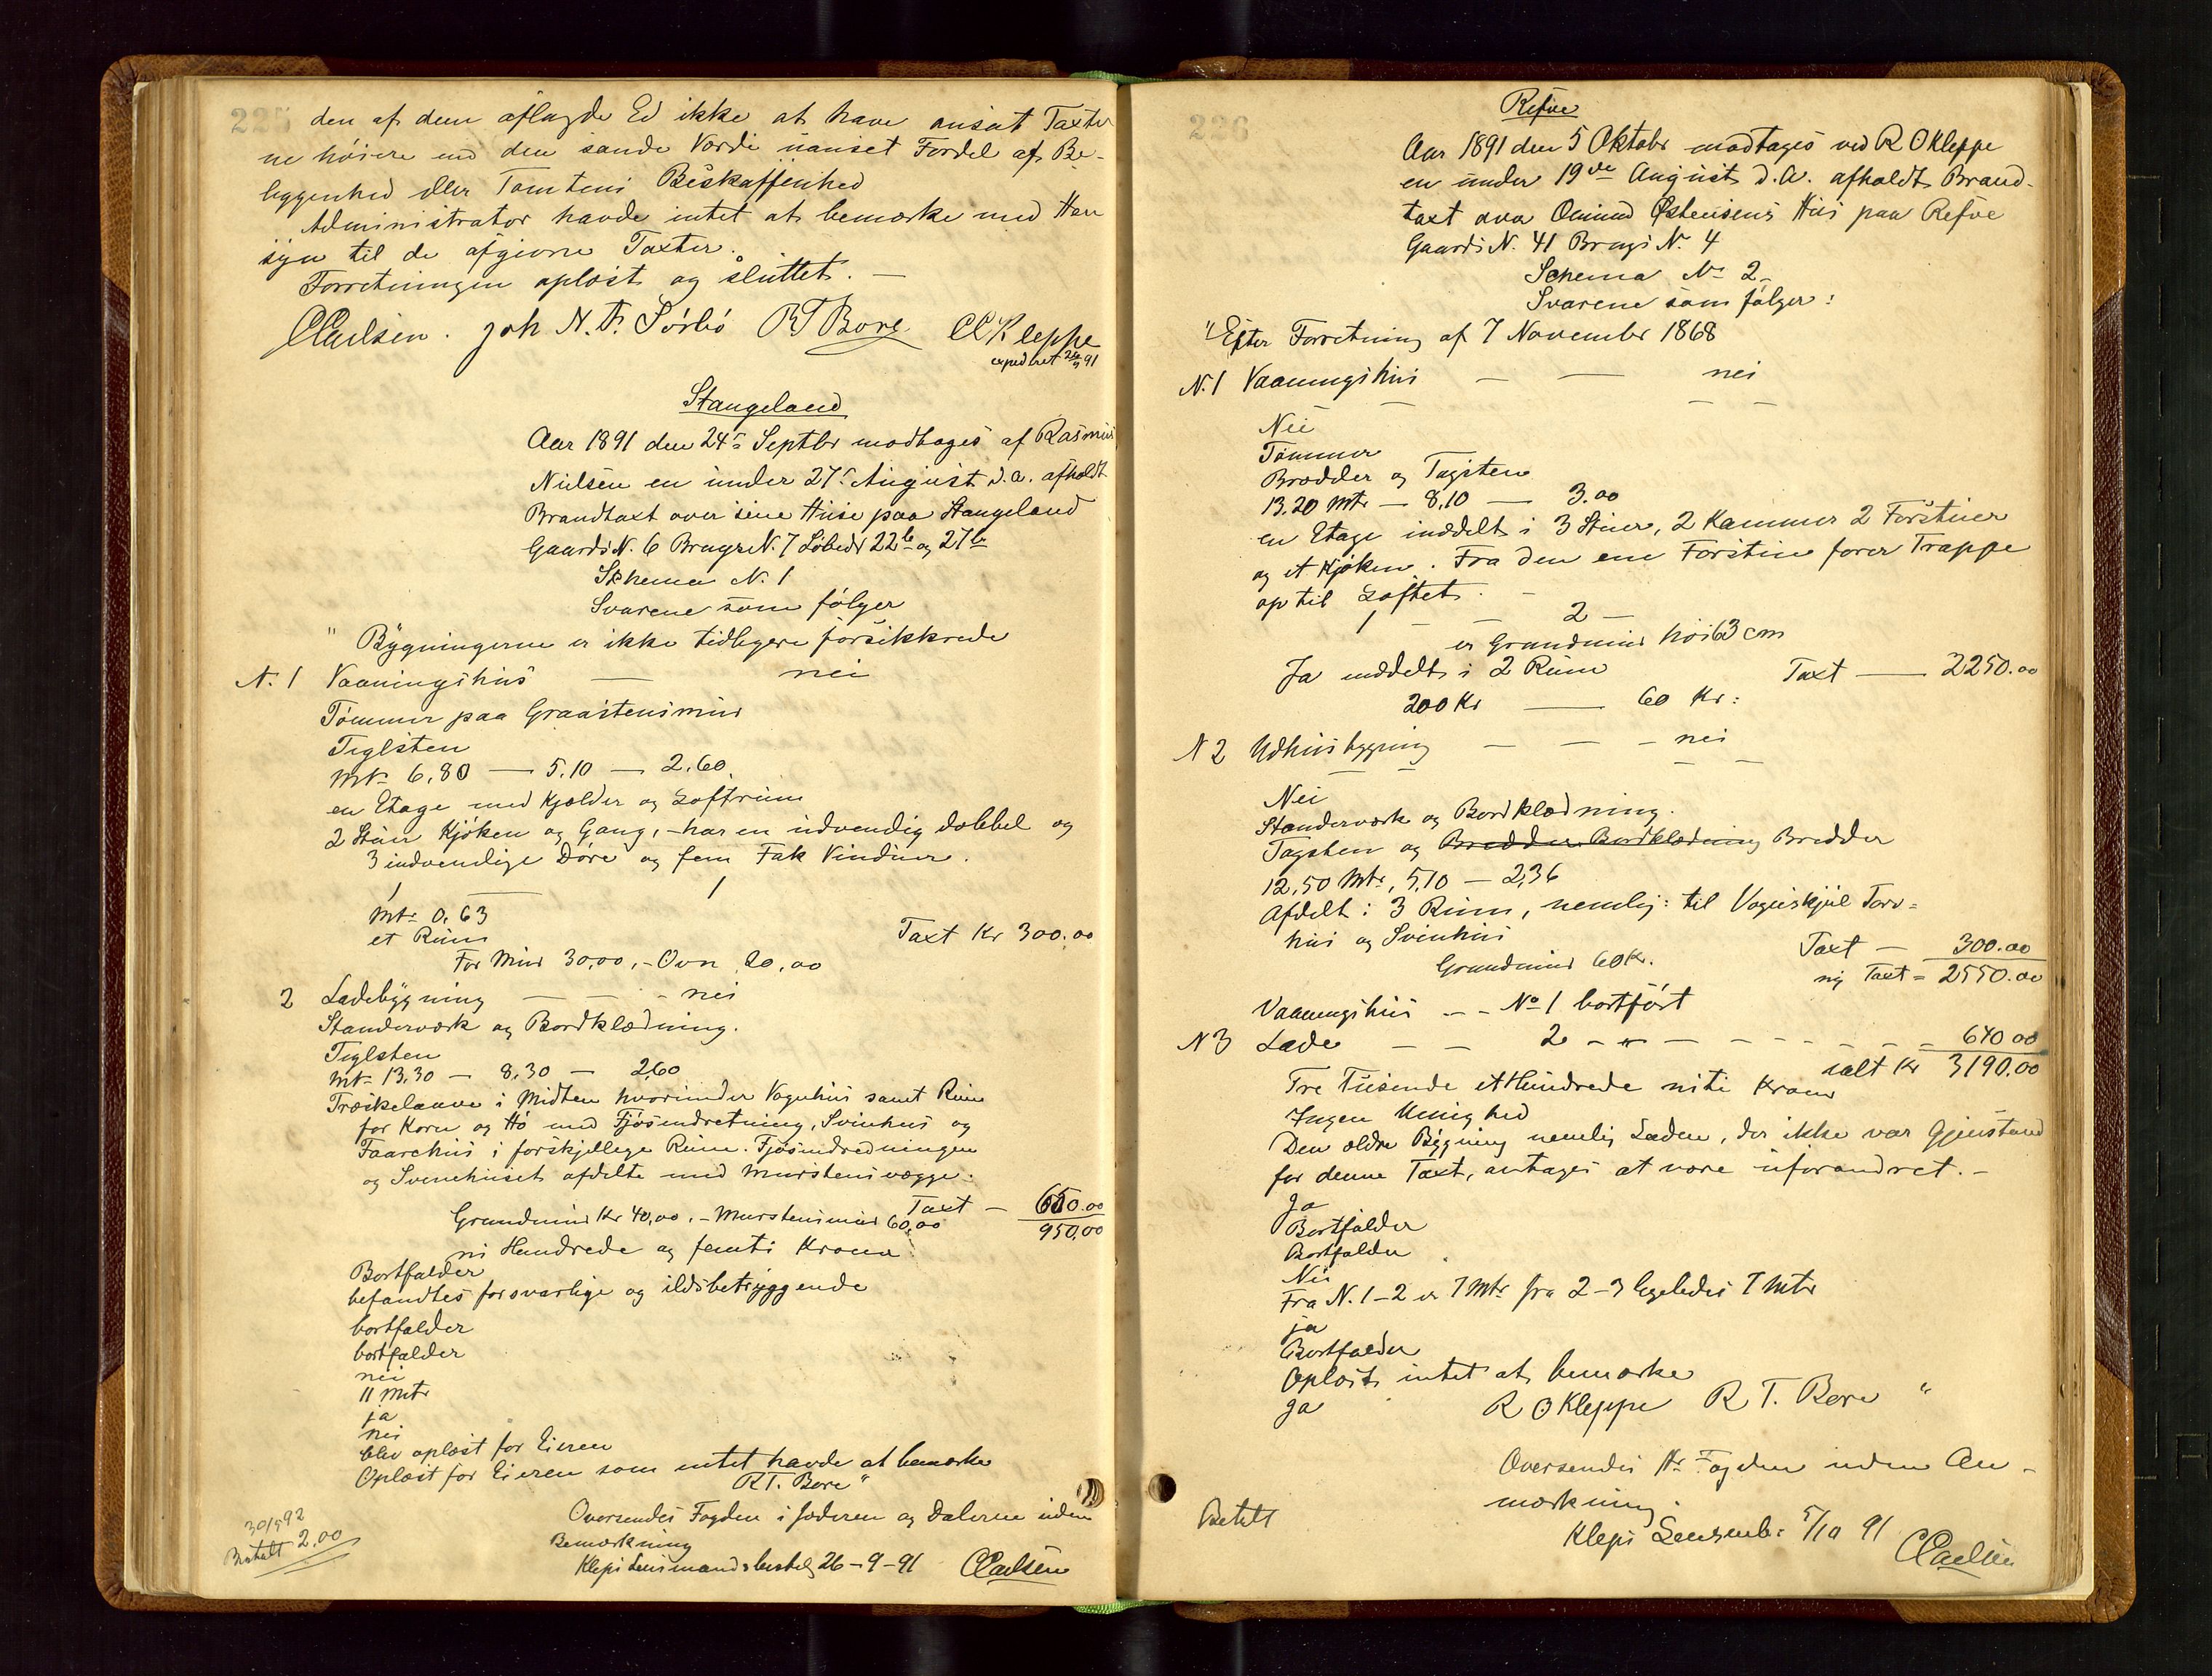 225
den af dem aflagde Ed ikke at have ansat Taxter
ne høiere end den sande Værdi uanset Fordel af Be-
liggenhed eller Tomtens Beskaffenhed
Administrator havde intet at bemærke med Hen
syn til de afgivne Taxter.
Forretningen oplæst og sluttet. —
CCarlsen. Joh N. T. Sørbø RT Bore CC Kleppe
expederet 26/9 91
Stangeland
Aar 1891 den 24de Septbr modtages af Rasmus
Nielsen en under 27de August d.a. afholdt
Brandtaxt over sine Huse paa Stangeland
Gaards N. 6 Brugs N. 7 Løbedr 22b og 27b
Schema N. 1
Svarene som følger
" Bygningerne er ikke tidligere forsikkrede
N. 1 Vaaningshus — nei
Tømmer paa Graastensmur
Teglsten
Mtr 6,80 — 5,10 — 2,60.
en Etage med Kjælder og Loftrum
2 Stuer Kjøken og Gang, - har en udvendig dobbel og
3 indvendige Døre og fem Fak Vinduer.
1 — 1
Mtr 0,63
et Rum
Taxt Kr 300.00
For Mur 30,00, - Ovn 20,00
2 Ladebygning — — - nei
Standerværk og Bordklædning.
Teglsten
Mtr 13,30 — 8,30 — 2,60
Træskelaave i Midten hvorunder Vognhus samt Rum
for Korn og Hø med Fjøsindretning, Svinhus og
Faarehus i forskjellige Rum. Fjøsindredningen
og Svinehuset afdelte med Murstensvægge.
Taxt — 650.00
Grundmur Kr 40,00. - Murstensmur 60,00
950.00
ni Hundrede og femti Kroner
Bortfalder
befandtes forsvarlige og ildsbetryggende
bortfalder
bortfalder
nei
11 Mtr
ja
nei
blev oplæst for Eieren
Oplæst for Eieren som intet havde at bemærke
RT. Bore "
Oversendes Fogden i Jæderen og Dalerne uden
Bemærkning
Kleps Lensmandsbestil 26-9-91 CCarlsen
30/5 92
Betalt 2,00
226
Refve
Aar 1891 den 5 Oktobr modtages ved R O Kleppe
en under 19de August d.A. afholdt Brand-
taxt over Omund Østensens Hus paa Refve
Gaards N. 41 Brugs N. 4
Schema No 2
Svarene som følger:
"Efter Forretning af 7 November 1868
N. 1 Vaaningshus — — nei
Nei
Tømmer
Brædder og Tagsten
13.20 Mtr — 8,10 — 3.00
en Etage inddelt i 3 Stuer, 2 Kammer 2 Forstuer
og et Kjøken. Fra den ene Forstue fører Trappe
op til Loftet.
1 — — 2 —
er Grundmur høi 63 cm
Ja inddelt i 2 Rum Taxt — 2250.00
200 Kr — 60 Kr:
N 2 Udhusbygning — — - nei
Nei
Standerværk og Bordklædning.
Tagsten og Brædder Bordklædning Brædder
12,50 Mtr, 5,10 — 2,36
Afdelt i 3 Rum, nemlig: til Vognskjul Torv=
hus og Svinhus
Taxt — 300.00
Grundmur 60 Kr.
ny Taxt = 2550.00
Vaaningshus - - No 1 bortført
N 3 Lade — — 2 - " - - - - - 640 00
ialt Kr 3190.00
Tre Tusende et Hundrede niti Kroner
Ingen Uenighed
Den ældre Bygning nemlig Laden, der ikke var Gjenstand
for denne Taxt, antages at være uforandret. -
Ja
Bortfalder
Bortfalder
Nei
Fra N. 1-2 er 7 Mtr fra 2-3 ligeledes 7 Mtr
ja
Bortfalder
Oplæst intet at bemærke
Ja
R O Kleppe R T. Bore "
Oversendes Hr Fogden uden An-
mærkning.
Kleps Lensmb. 5/10 91 CCarlsen
Betalt